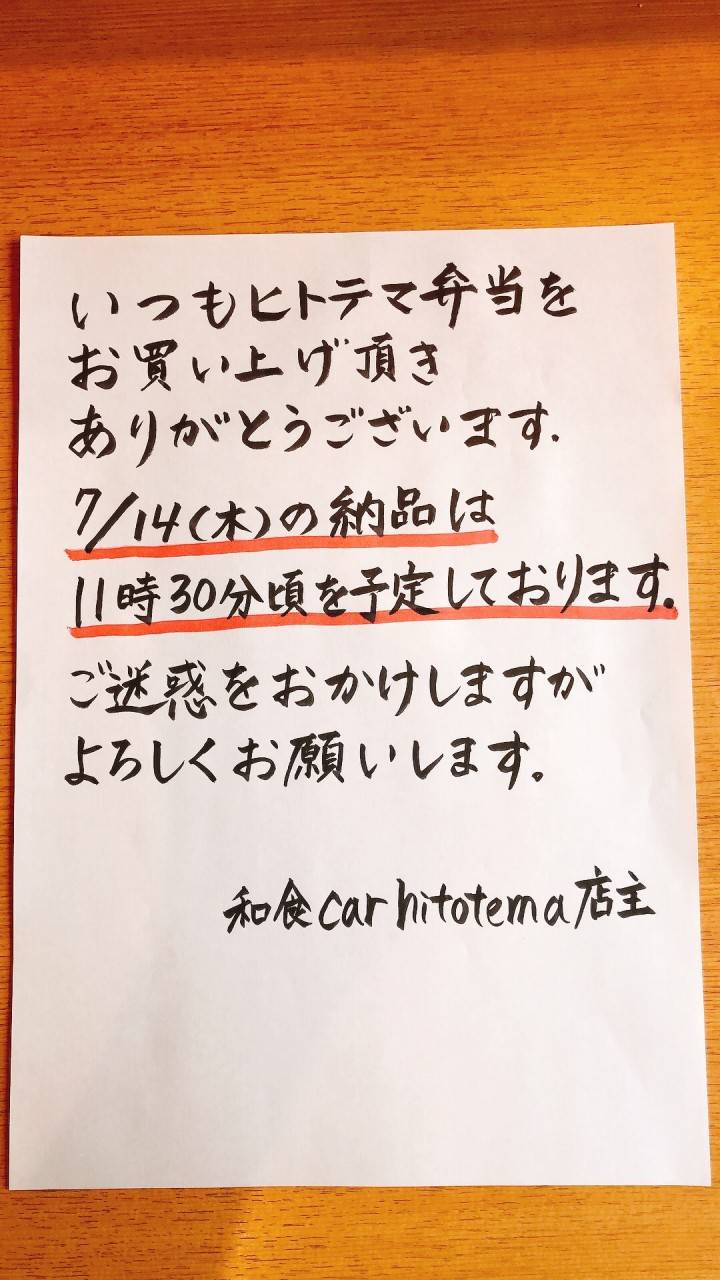 いつもヒトテマ弁当を
お買い上げ頂き
ありがとうございます.
7/14(木)の納品は
11時30分頃を予定しております。
ご迷惑をおかけしますが
よろしくお願いします。
和食car hitotema店主